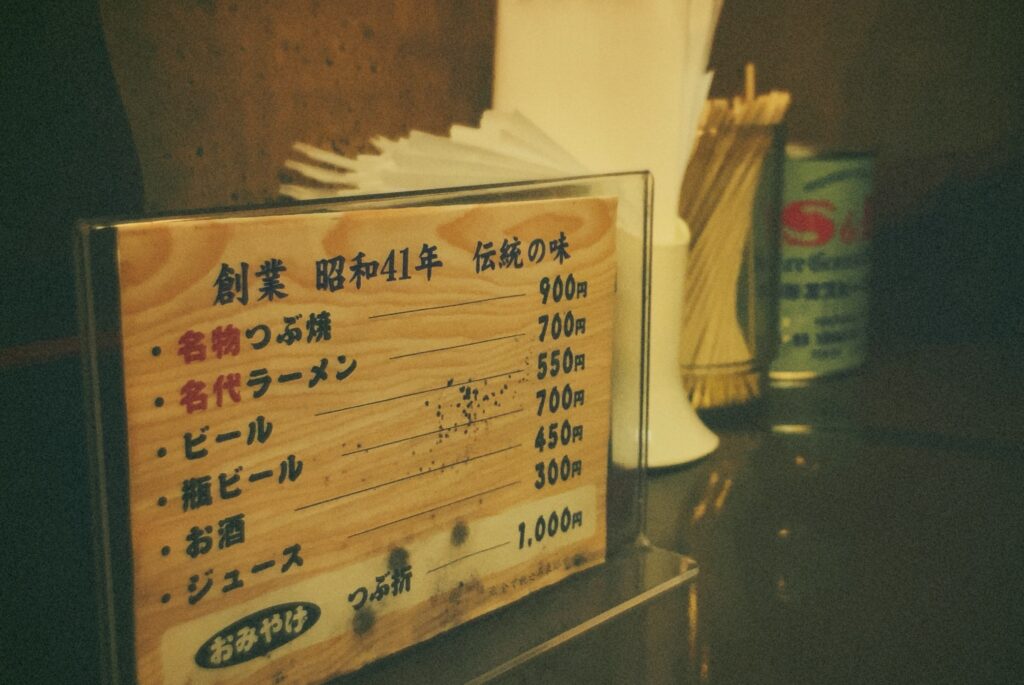 創業 昭和41年 伝統の味
・名物つぶ焼 900円
・名代ラーメン 700円
・ビール 550円
・瓶ビール 700円
・お酒 450円
・ジュース 300円
おみやげ つぶ折 1,000円
S&